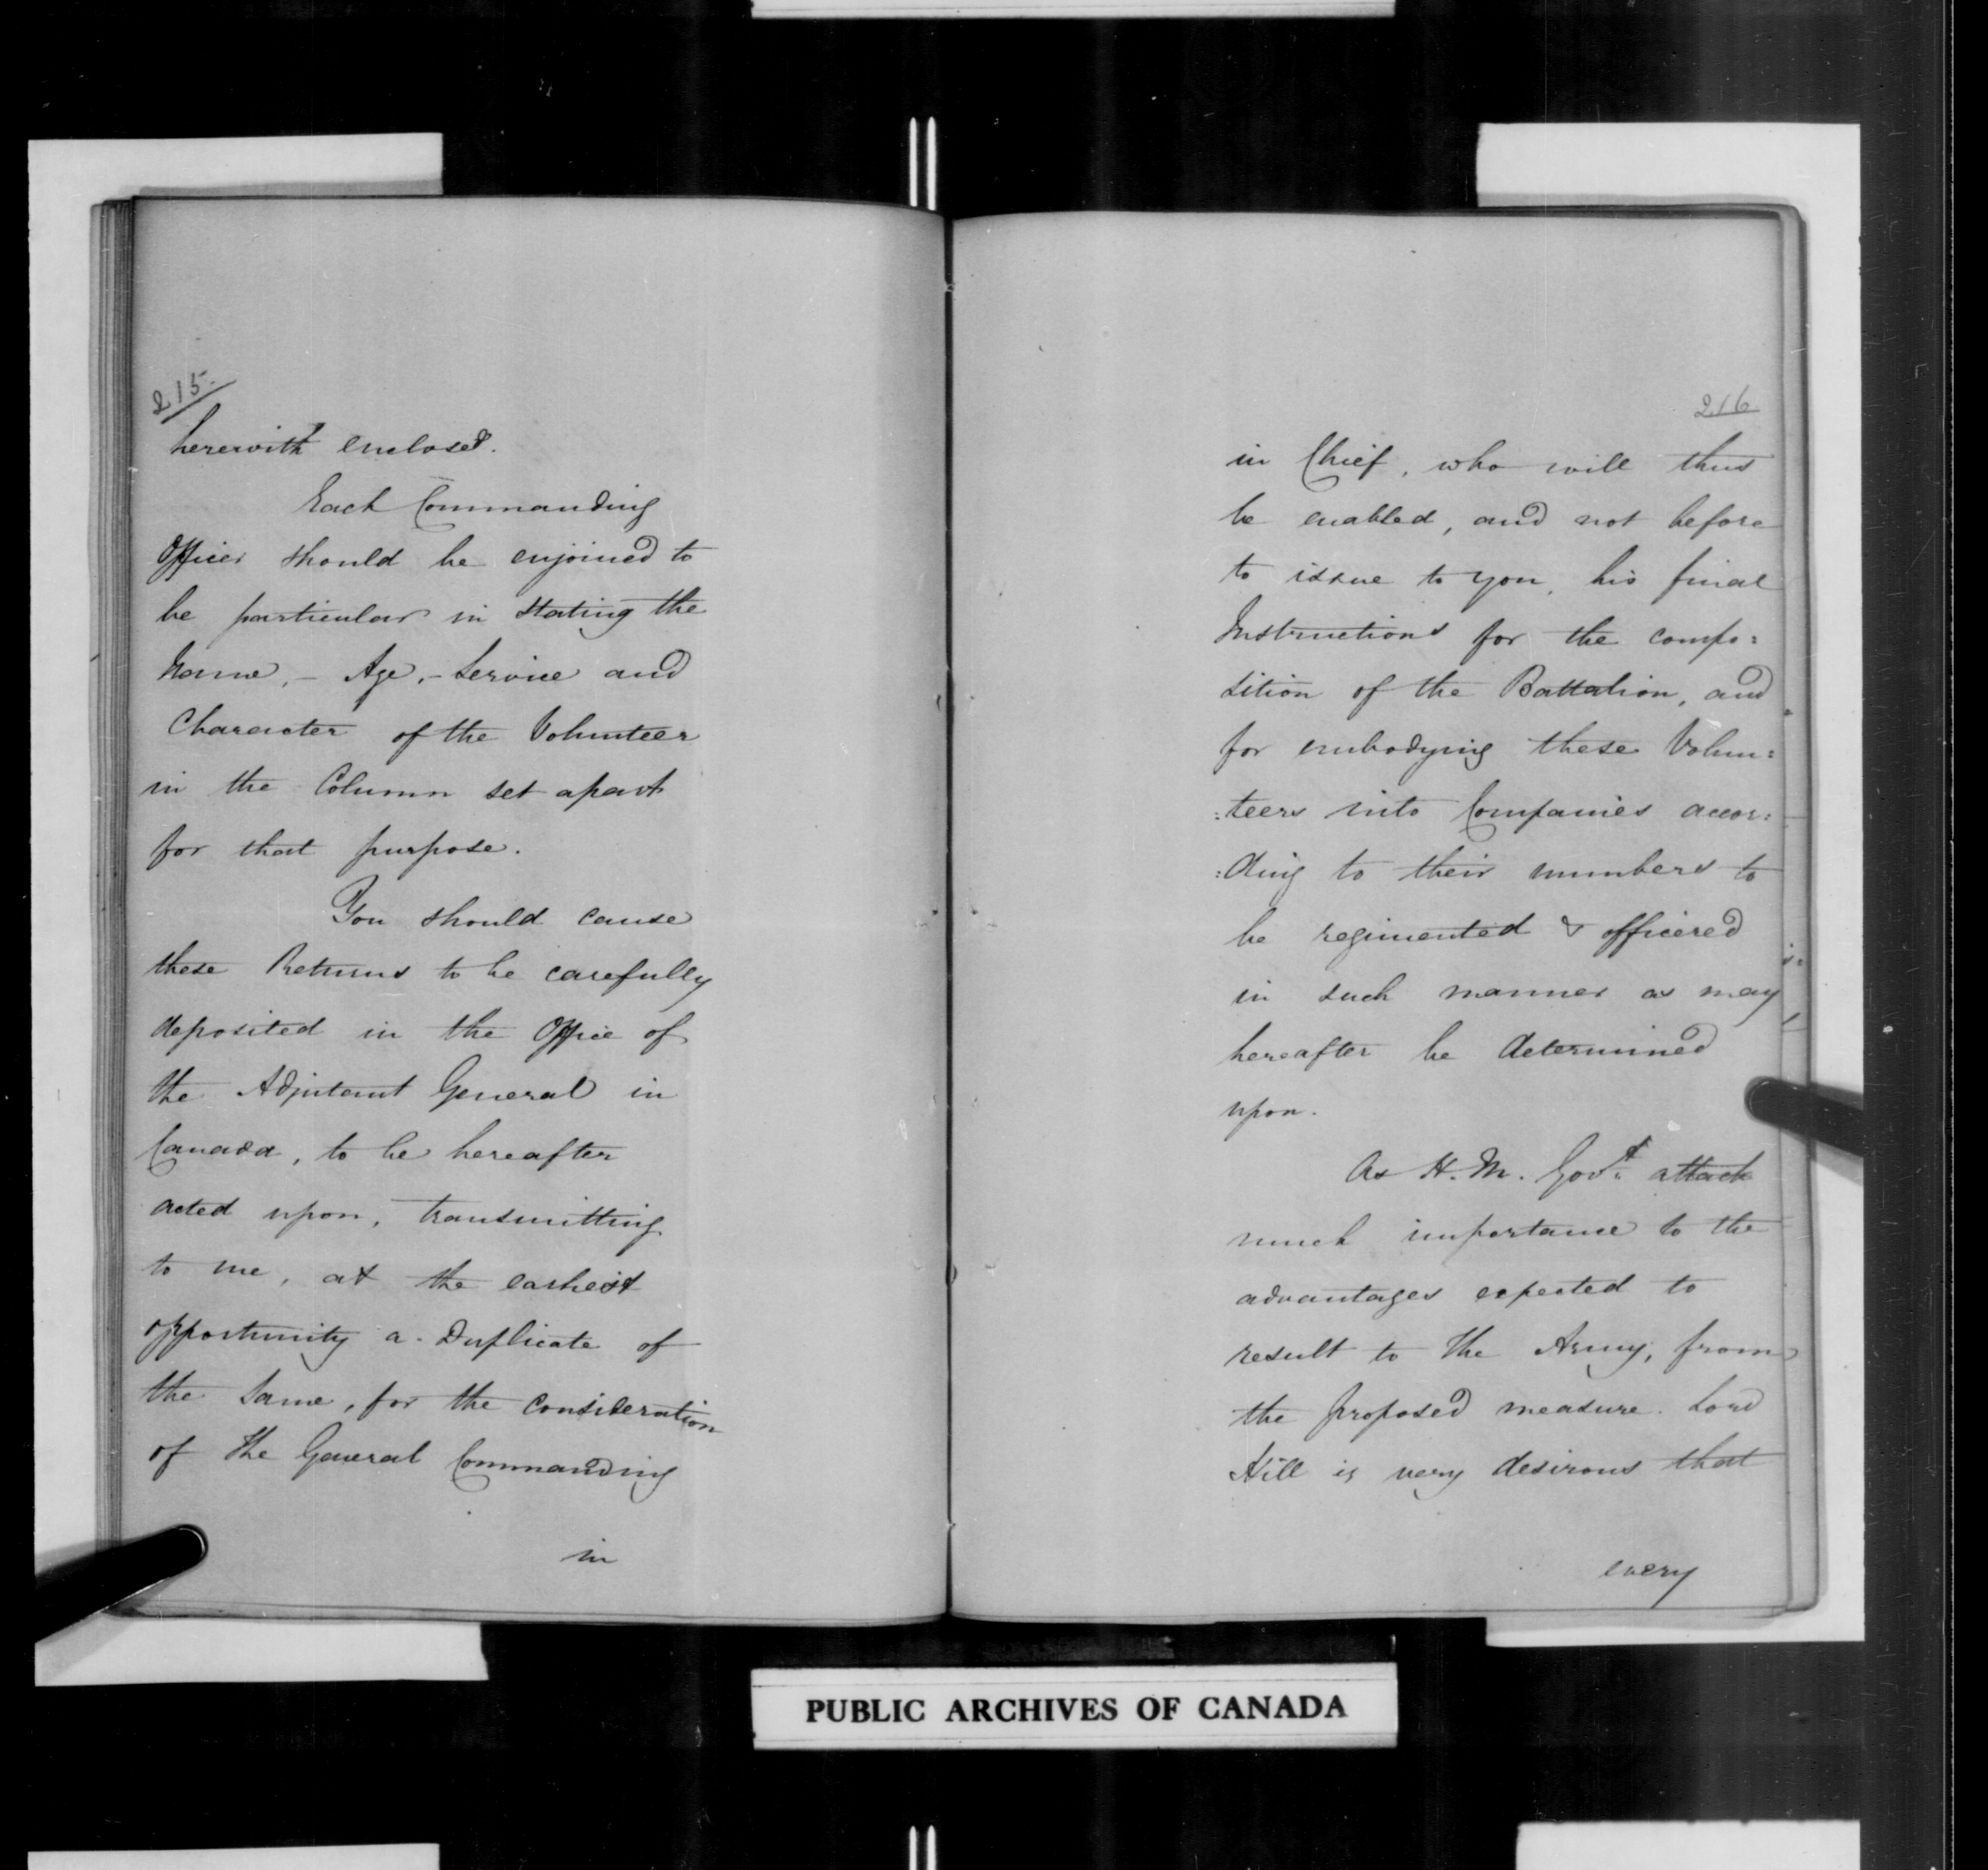 215.
herewith enclosed.
Each Commanding
Officer should be enjoined to
be particular in stating the
Name, - Age, - Service and
Character of the Volunteer
in the Column set apart
for that purpose.
You should cause
these Returns to be carefully
deposited in the Office of
the Adjutant General in
Canada, to be hereafter
acted upon, transmitting
to me, at the earliest
opportunity a Duplicate of
the same, for the consideration
of the General Commanding
in
216.
in Chief, who will thus
be enabled, and not before
to issue to you, his final
Instructions for the compo:
sition of the Battalion, and
for embodying these Volun:
:teers into Companies accor:
:ding to their numbers to
be regimented & officered
in such manner as may
hereafter be determined
upon.
As H. M. Govt. attach
much importance to the
advantages expected to
result to the Army, from
the proposed measure. Lord
Hill is very desirous that
every
PUBLIC ARCHIVES OF CANADA